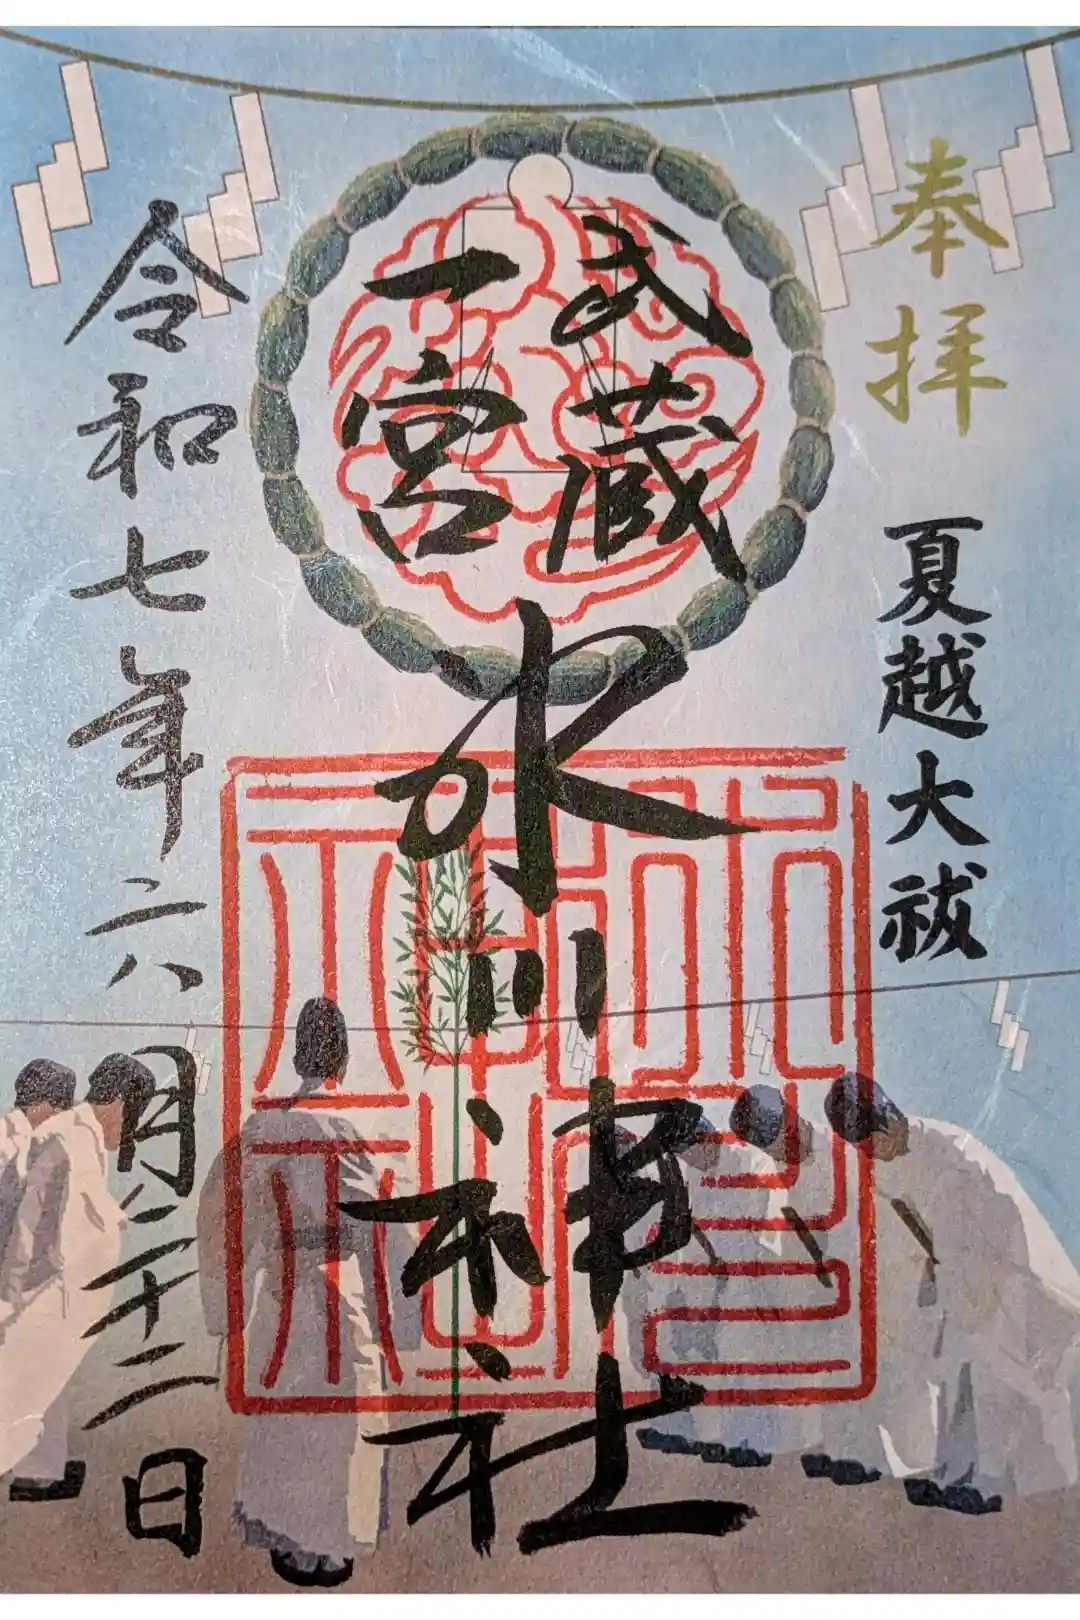 奉拝
夏越大祓
武蔵
一宮
氷川神社
令和七年六月二十二日